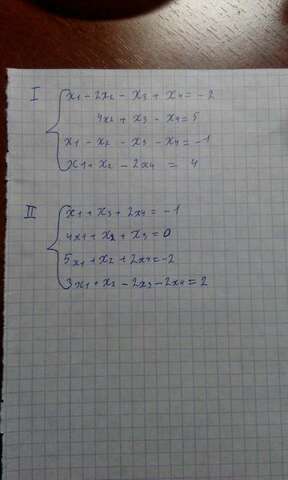 I
x1 - 2x2 - x3 + x4 = -2
4x2 + x3 - x4 = 5
x1 - x2 - x3 - x4 = -1
x1 + x2 - 2x4 = 4
II
x1 + x3 + 2x4 = -1
4x1 + x2 + x3 = 0
5x1 + x2 + 2x4 = -2
3x1 + x2 - 2x3 - 2x4 = 2